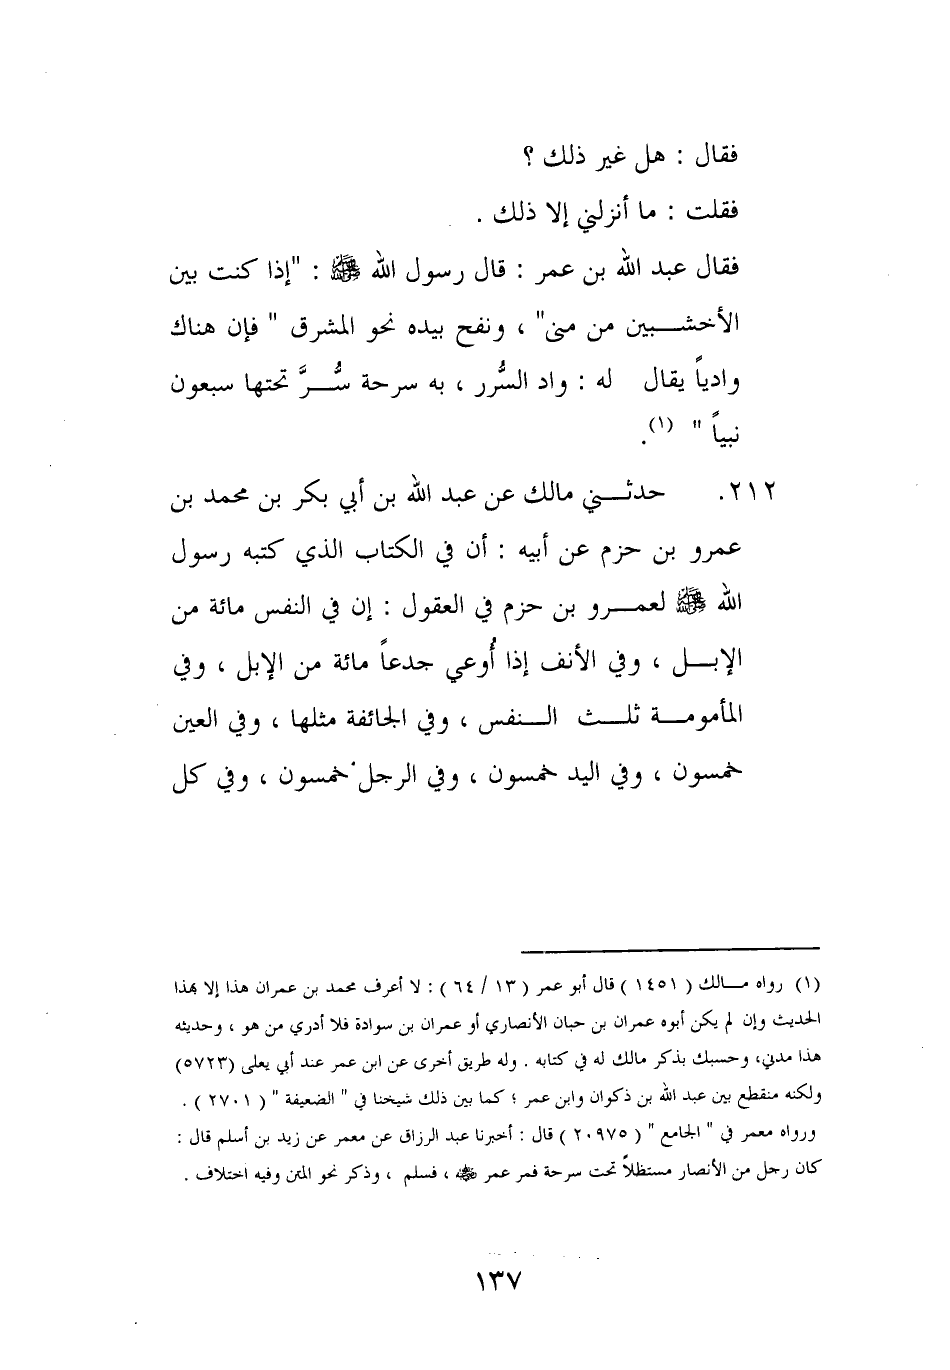 فقال : هل غير ذلك ؟
فقلت : ما أنزلني إلا ذلك .
فقال عبد الله بن عمر : قال رسول الله ﷺ : "إذا كنت بين
الأخشبين من منى" ، ونفح بيده نحو المشرق " فإن هناك
وادياً يقال له : واد السُّرر ، به سرحة سُرَّ تحتها سبعون
نبياً " (١).
٢١٢. حدثني مالك عن عبد الله بن أبي بكر بن محمد بن
عمرو بن حزم عن أبيه : أن في الكتاب الذي كتبه رسول
الله ﷺ لعمرو بن حزم في العقول : إن في النفس مائة من
الإبل ، وفي الأنف إذا أُوعي جدعاً مائة من الإبل ، وفي
المأمومة ثلث النفس ، وفي الجائفة مثلها ، وفي العين
خمسون ، وفي اليد خمسون ، وفي الرجل خمسون ، وفي كل
(١) رواه مالك ( ١٤٥١ ) قال أبو عمر ( ١٣ / ٦٤ ) : لا أعرف محمد بن عمران هذا إلا بهذا
الحديث وإن لم يكن أبوه عمران بن حبان الأنصاري أو عمران بن سوادة فلا أدري من هو ، وحديثه
هذا مدني، وحسبك بذكر مالك له في كتابه . وله طريق أخرى عن ابن عمر عند أبي يعلى (٥٧٢٣)
ولكنه منقطع بين عبد الله بن ذكوان وابن عمر ؛ كما بين ذلك شيخنا في " الضعيفة " ( ٢٧٠١ ) .
ورواه معمر في " الجامع " ( ٢٠٩٧٥ ) قال : أخبرنا عبد الرزاق عن معمر عن زيد بن أسلم قال :
كان رجل من الأنصار مستظلاً تحت سرحة فمر عمر ، فسلم ، وذكر نحو المتن وفيه اختلاف .
١٣٧